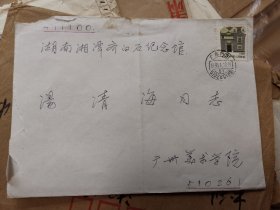 411100
湖南湘潭齐白石纪念馆
湯清海同志
广州美术学院
510261